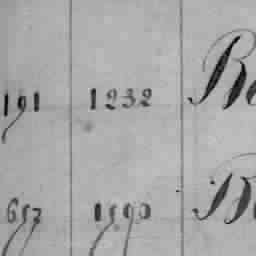 191 1232 Be
657 1590 Be